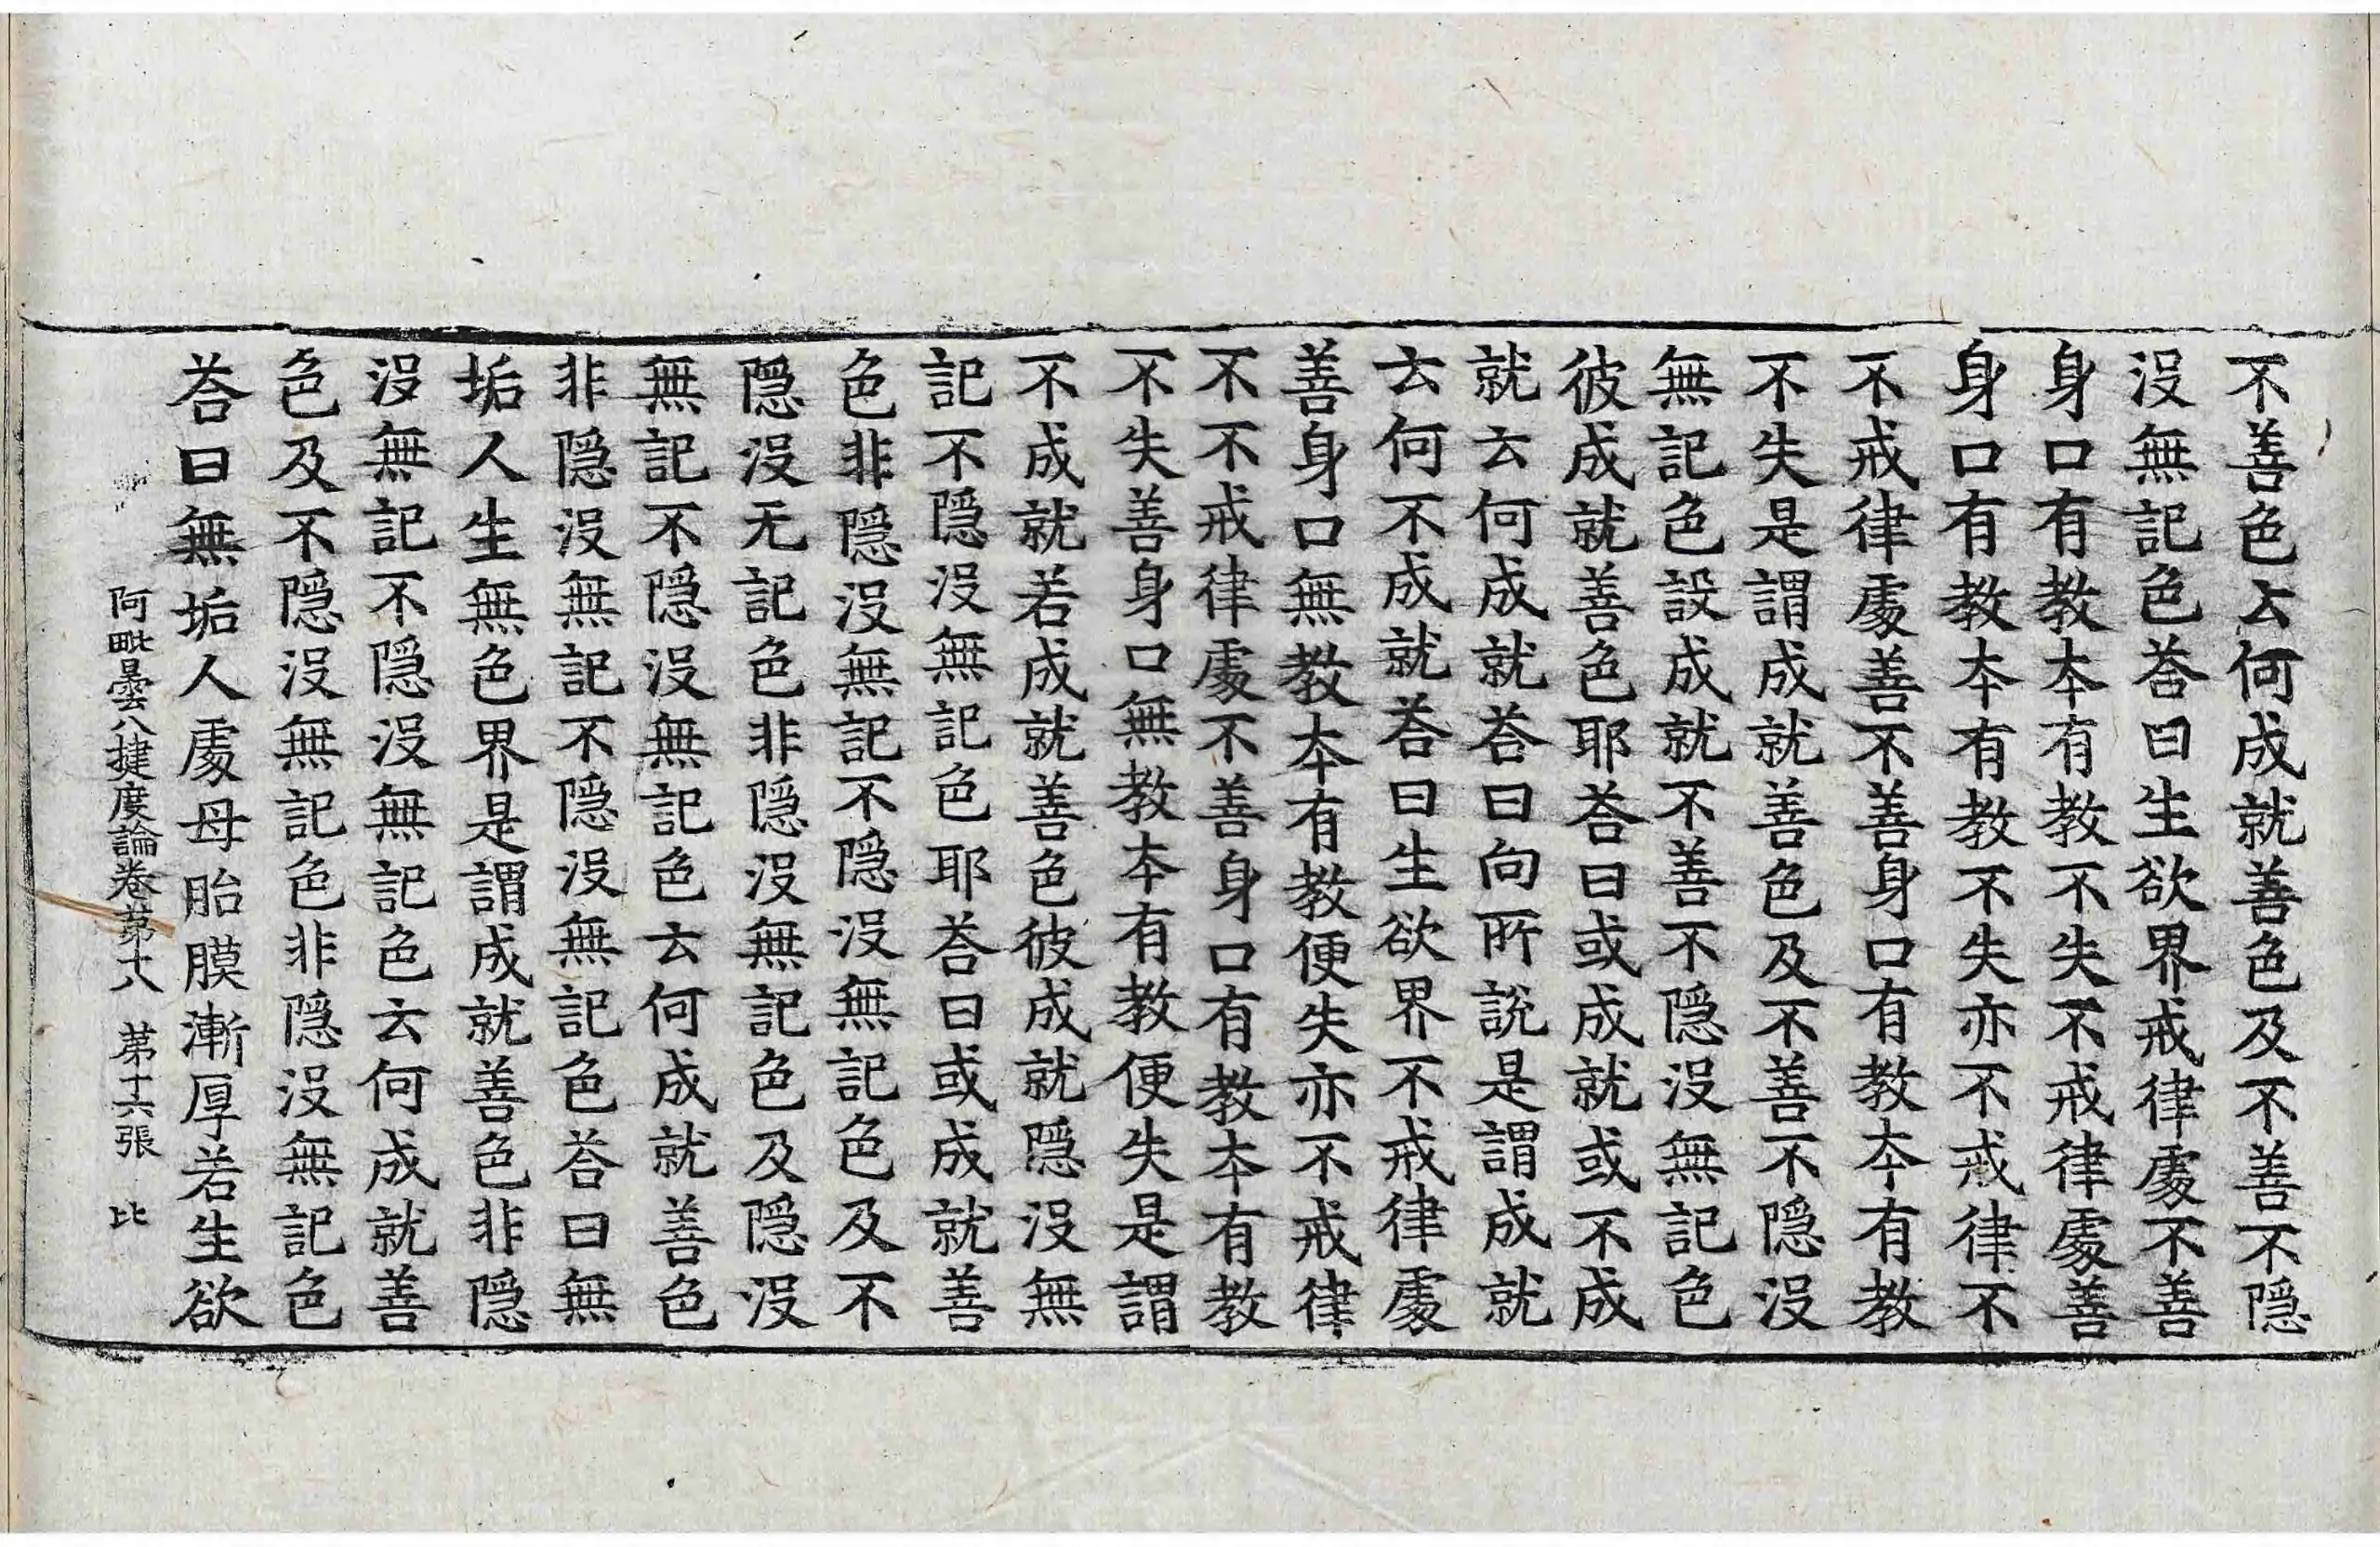 不善色云何成就善色及不善不隱
沒無記色荅曰生欲界戒律處不善
身口有教本有教不失不戒律處善
身口有教本有教不失亦不戒律不
不戒律處善不善身口有教本有教
不失是謂成就善色及不善不隱沒
無記色設成就不善不隱沒無記色
彼成就善色耶荅曰或成就或不成
就云何成就荅曰向所說是謂成就
云何不成就荅曰生欲界不戒律處
善身口無教本有教便失亦不戒律
不不戒律處不善身口有教本有教
不失善身口無教本有教便失是謂
不成就若成就善色彼成就隱沒無
記不隱沒無記色耶荅曰或成就善
色非隱沒無記不隱沒無記色及不
隱沒无記色非隱沒無記色及隱沒
無記不隱沒無記色云何成就善色
非隱沒無記不隱沒無記色荅曰無
垢人生無色界是謂成就善色非隱
沒無記不隱沒無記色云何成就善
色及不隱沒無記色非隱沒無記色
荅曰無垢人處母胎膜漸厚若生欲
阿毗曇八揵度論卷苐十八 苐十六張 比